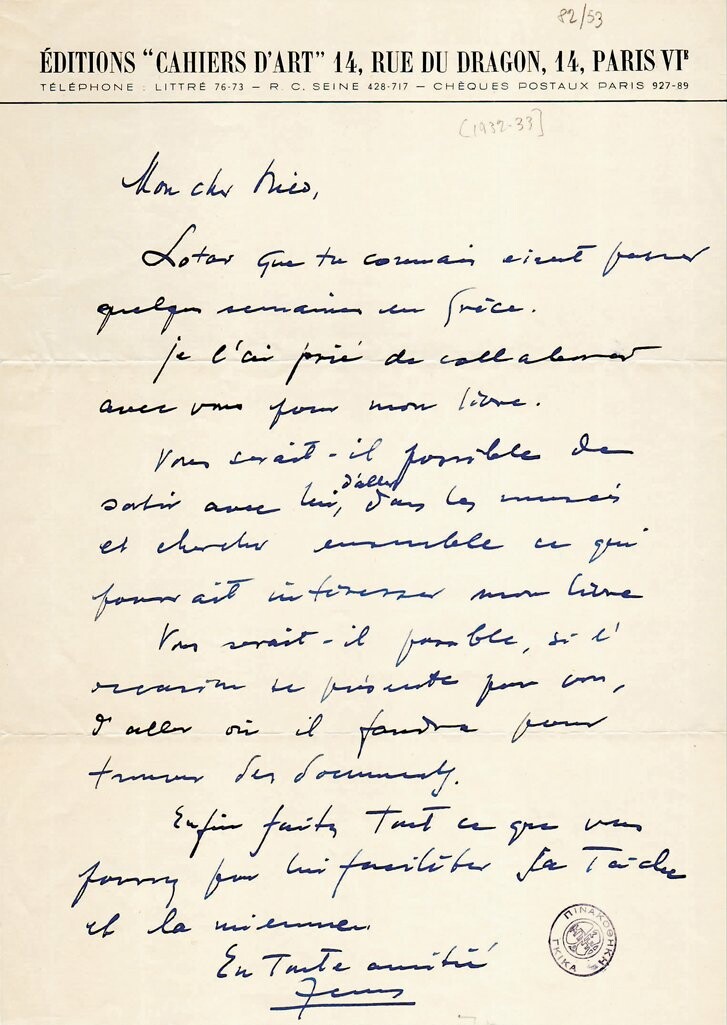 82/53
ÉDITIONS "CAHIERS D'ART" 14, RUE DU DRAGON, 14, PARIS VIE
TÉLÉPHONE : LITTRÉ 76-73 – R. C. SEINE 428-717 – CHÈQUES POSTAUX PARIS 927-89
[1932-33]
Mon cher Nico,
Lotar que tu connais vient passer
quelques semaines en Grèce.
je l'ai prié de collaborer
avec vous pour mon livre.
Vous serait-il possible de
sortir avec lui, d'aller dans les musées
et chercher ensemble ce qui
pourrait intéresser mon livre
Vous serait-il possible, si l'
occasion se présente pour vous,
d'aller où il faudra pour
trouver des documents.
Enfin faites tout ce que vous
pourrez pour lui faciliter sa tâche
et la mienne.
En toute amitié
ΠΙΝΑΚΟΘΗΚΗ
ΓΚΙΚΑ